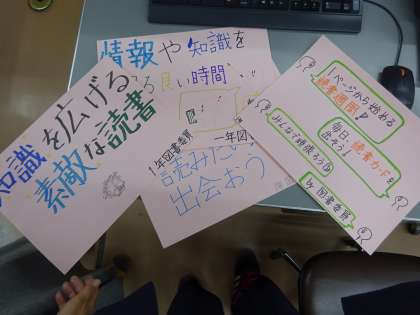 知識を広げる
素敵な読書
情報や知識を
良い時間
一年図
1年図書委員
読みたい
出会おう
1ページから始める
読書週間!!
毎日
読書カードを
みんなで頑張ろう
by 図書委員